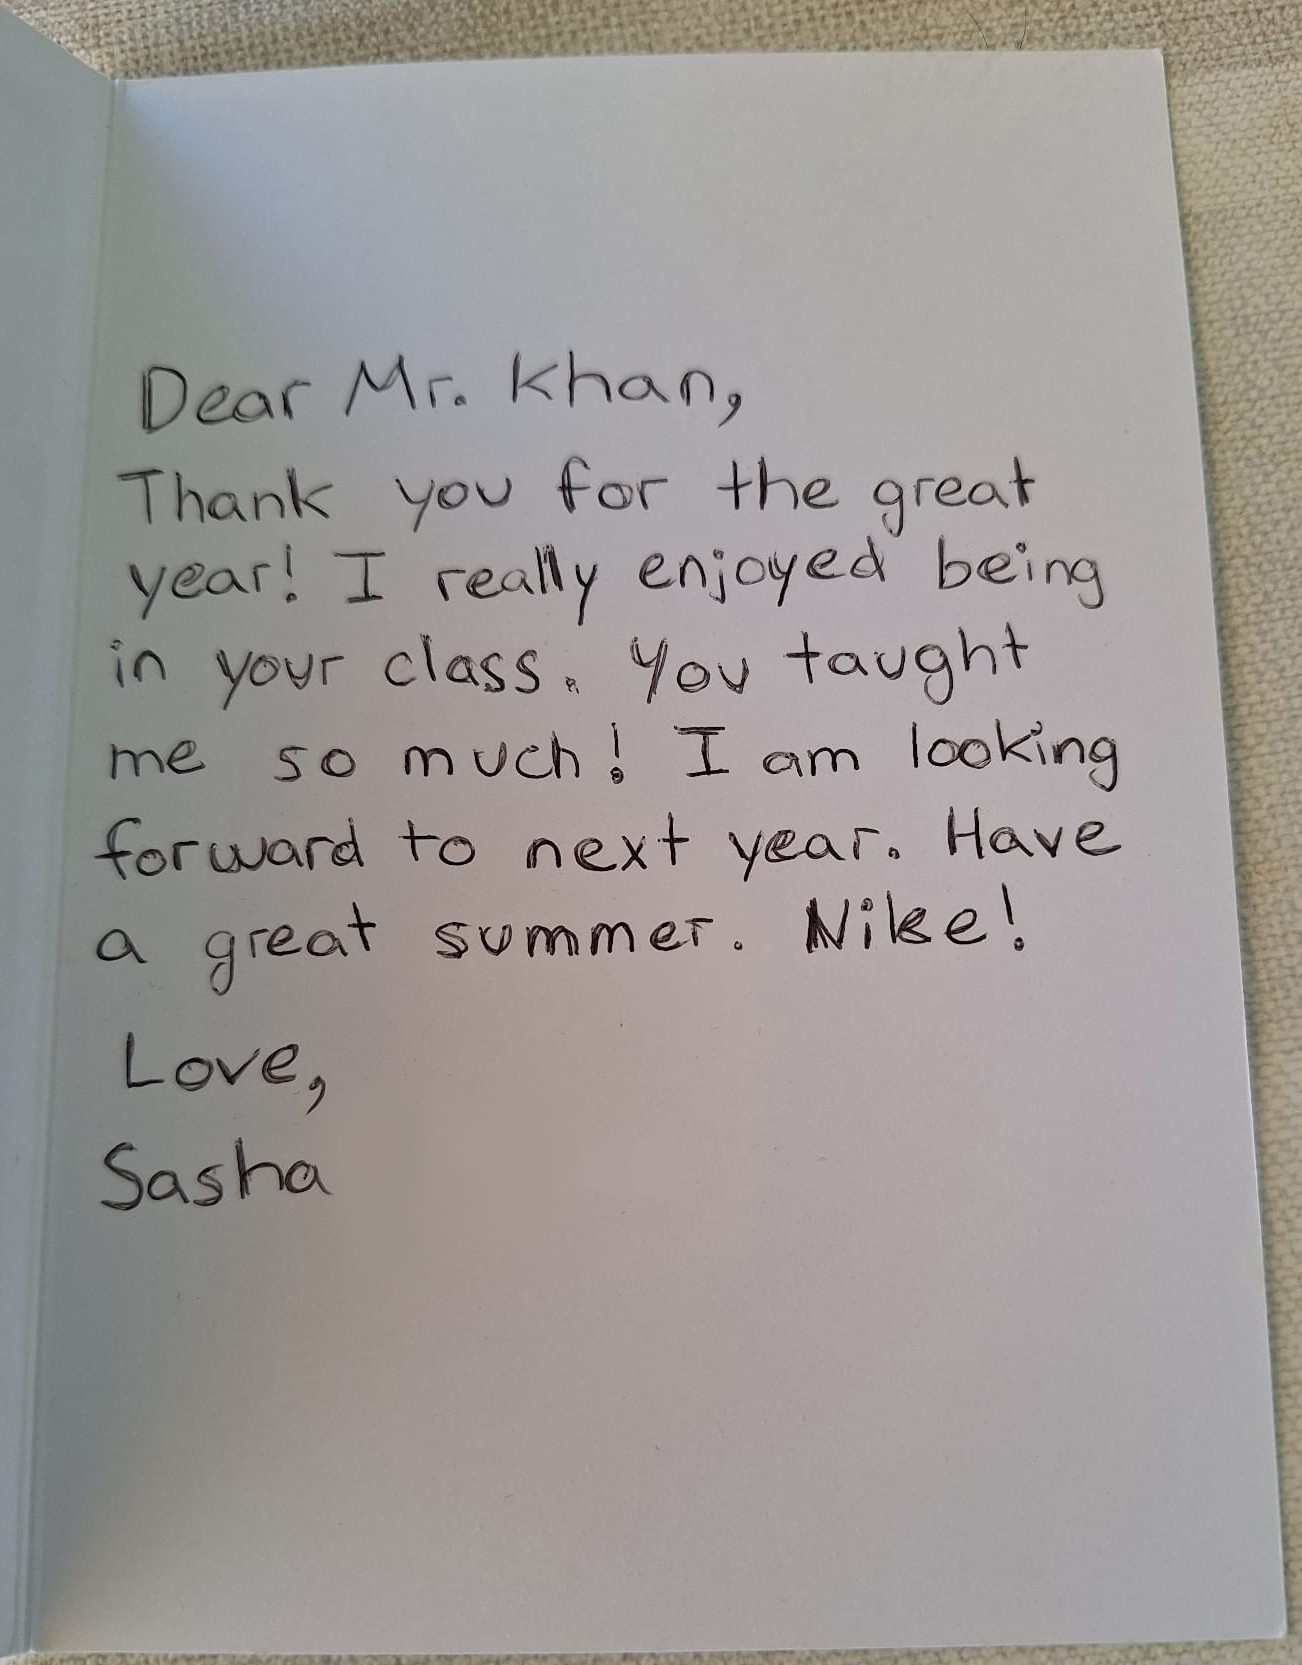 Dear Mr. Khan,
Thank you for the great
year! I really enjoyed being
in your class. You taught
me so much! I am looking
forward to next year. Have
a great summer. Nike!
Love,
Sasha